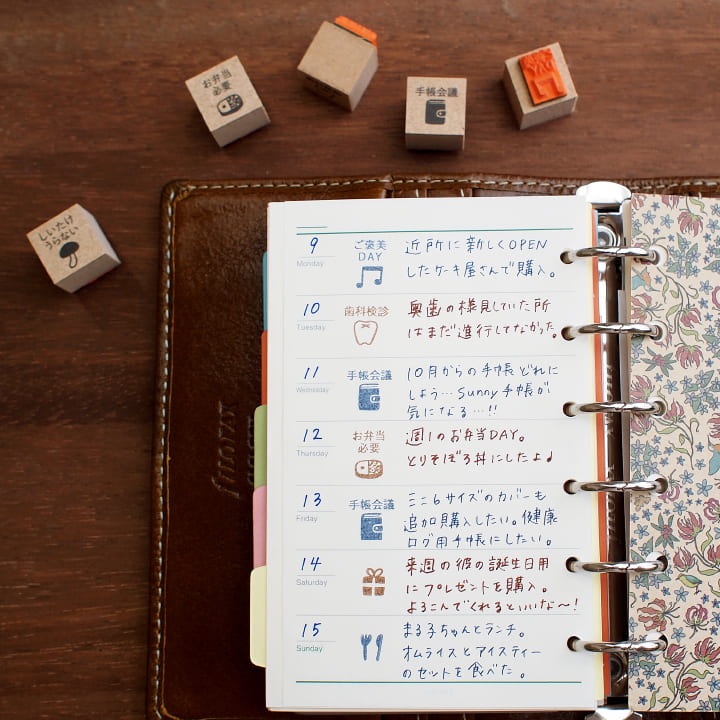 お弁当
必要
手帳会議
しいたけ
うらない
9
Monday
ご褒美
DAY
近所に新しくOPEN
したケーキ屋さんで購入。
10
Tuesday
歯科検診
奥歯の様見していた所
はまだ進行してなかった。
11
Wednesday
手帳会議
10月からの手帳どれに
しよう…Sunny手帳が
気になる…!!
12
Thursday
お弁当
必要
週1のお弁当DAY。
とりそぼろ丼にしたよ♩
13
Friday
手帳会議
ミニ6サイズのカバーも
追加購入したい。健康
ログ用手帳にしたい。
14
Saturday
来週の彼の誕生日用
にプレゼントを購入。
よろこんでくれるといいな〜!
15
Sunday
まる子ちゃんとランチ。
オムライスとアイスティー
のセットを食べた。